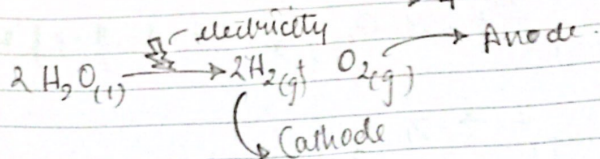 electricity
2H₂O(l) → 2H₂(g) O₂(g) → Anode
Cathode